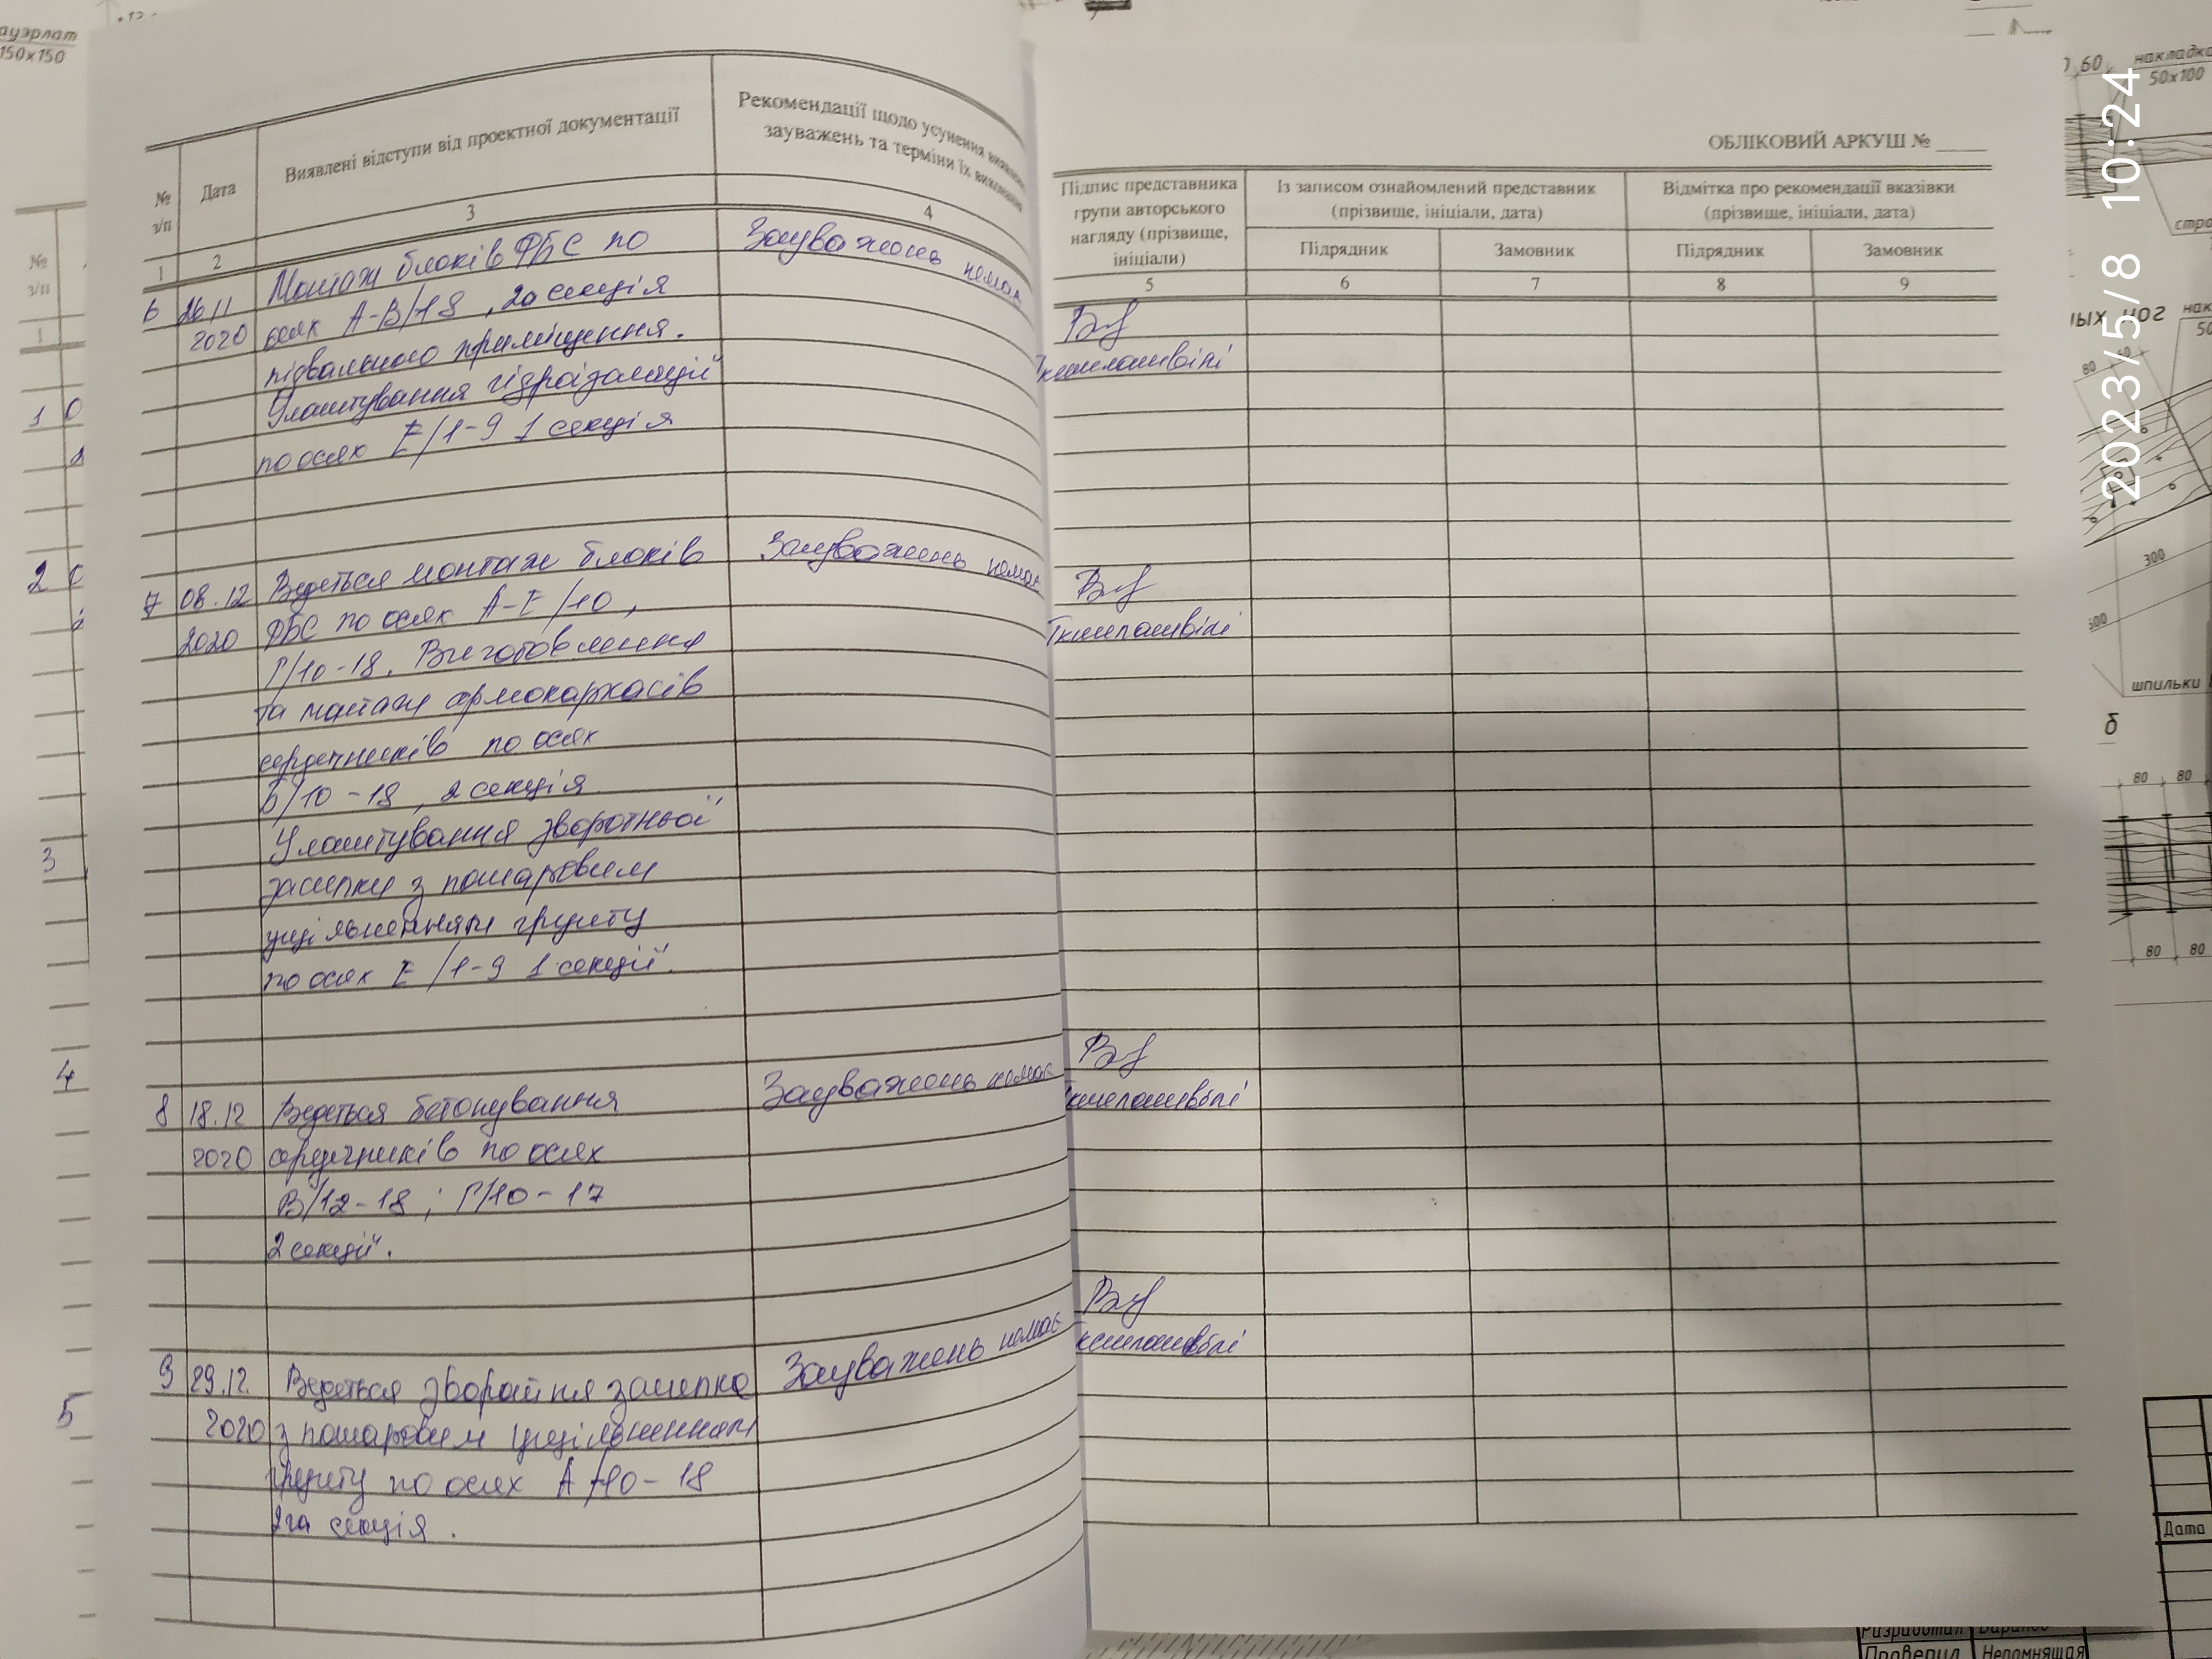 ауэрлат
150х150
№
з/п
Дата
Виявлені відступи від проектної документації
Рекомендації щодо усунення
зауважень та терміни їх виконання
1
2
3
4
6
26.11
2020
Монтаж блоків ФБС по
осях А-В/18, 2а секція
підвального приміщення.
Улаштування гідроізоляції
по осях Е/1-9 1 секція
Зауважень немає
7
08.12
2020
Ведеться монтаж блоків
ФБС по осях А-Е/10,
Г/10-18. Виготовлення
та монтаж армокаркасів
сердечників по осях
Б/10-18, 2 секція
Улаштування зворотньої
засипки з пошаровим
ущільненням грунту
по осях Е/1-9 1 секції.
Зауважень немає
8
18.12
2020
Ведеться бетонування
сердечників по осях
В/12-18; Г/10-17
2 секції.
Зауважень немає
9
29.12.
2020
Ведеться зворотня засипка
з пошаровим ущільненням
грунту по осях А/10-18
2га секція.
Зауважень немає
ОБЛІКОВИЙ АРКУШ №
Підпис представника
групи авторського
нагляду (прізвище,
ініціали)
Із записом ознайомлений представник
(прізвище, ініціали, дата)
Відмітка про рекомендації вказівки
(прізвище, ініціали, дата)
Підрядник
Замовник
Підрядник
Замовник
5
6
7
8
9
№
з/п
1
1
2
3
4
5
60
накладка
50х100
300
шпильки
б
80
80
80
80
Дата
Разработал
Проверил
Непомнящая
2023/5/8 10:24